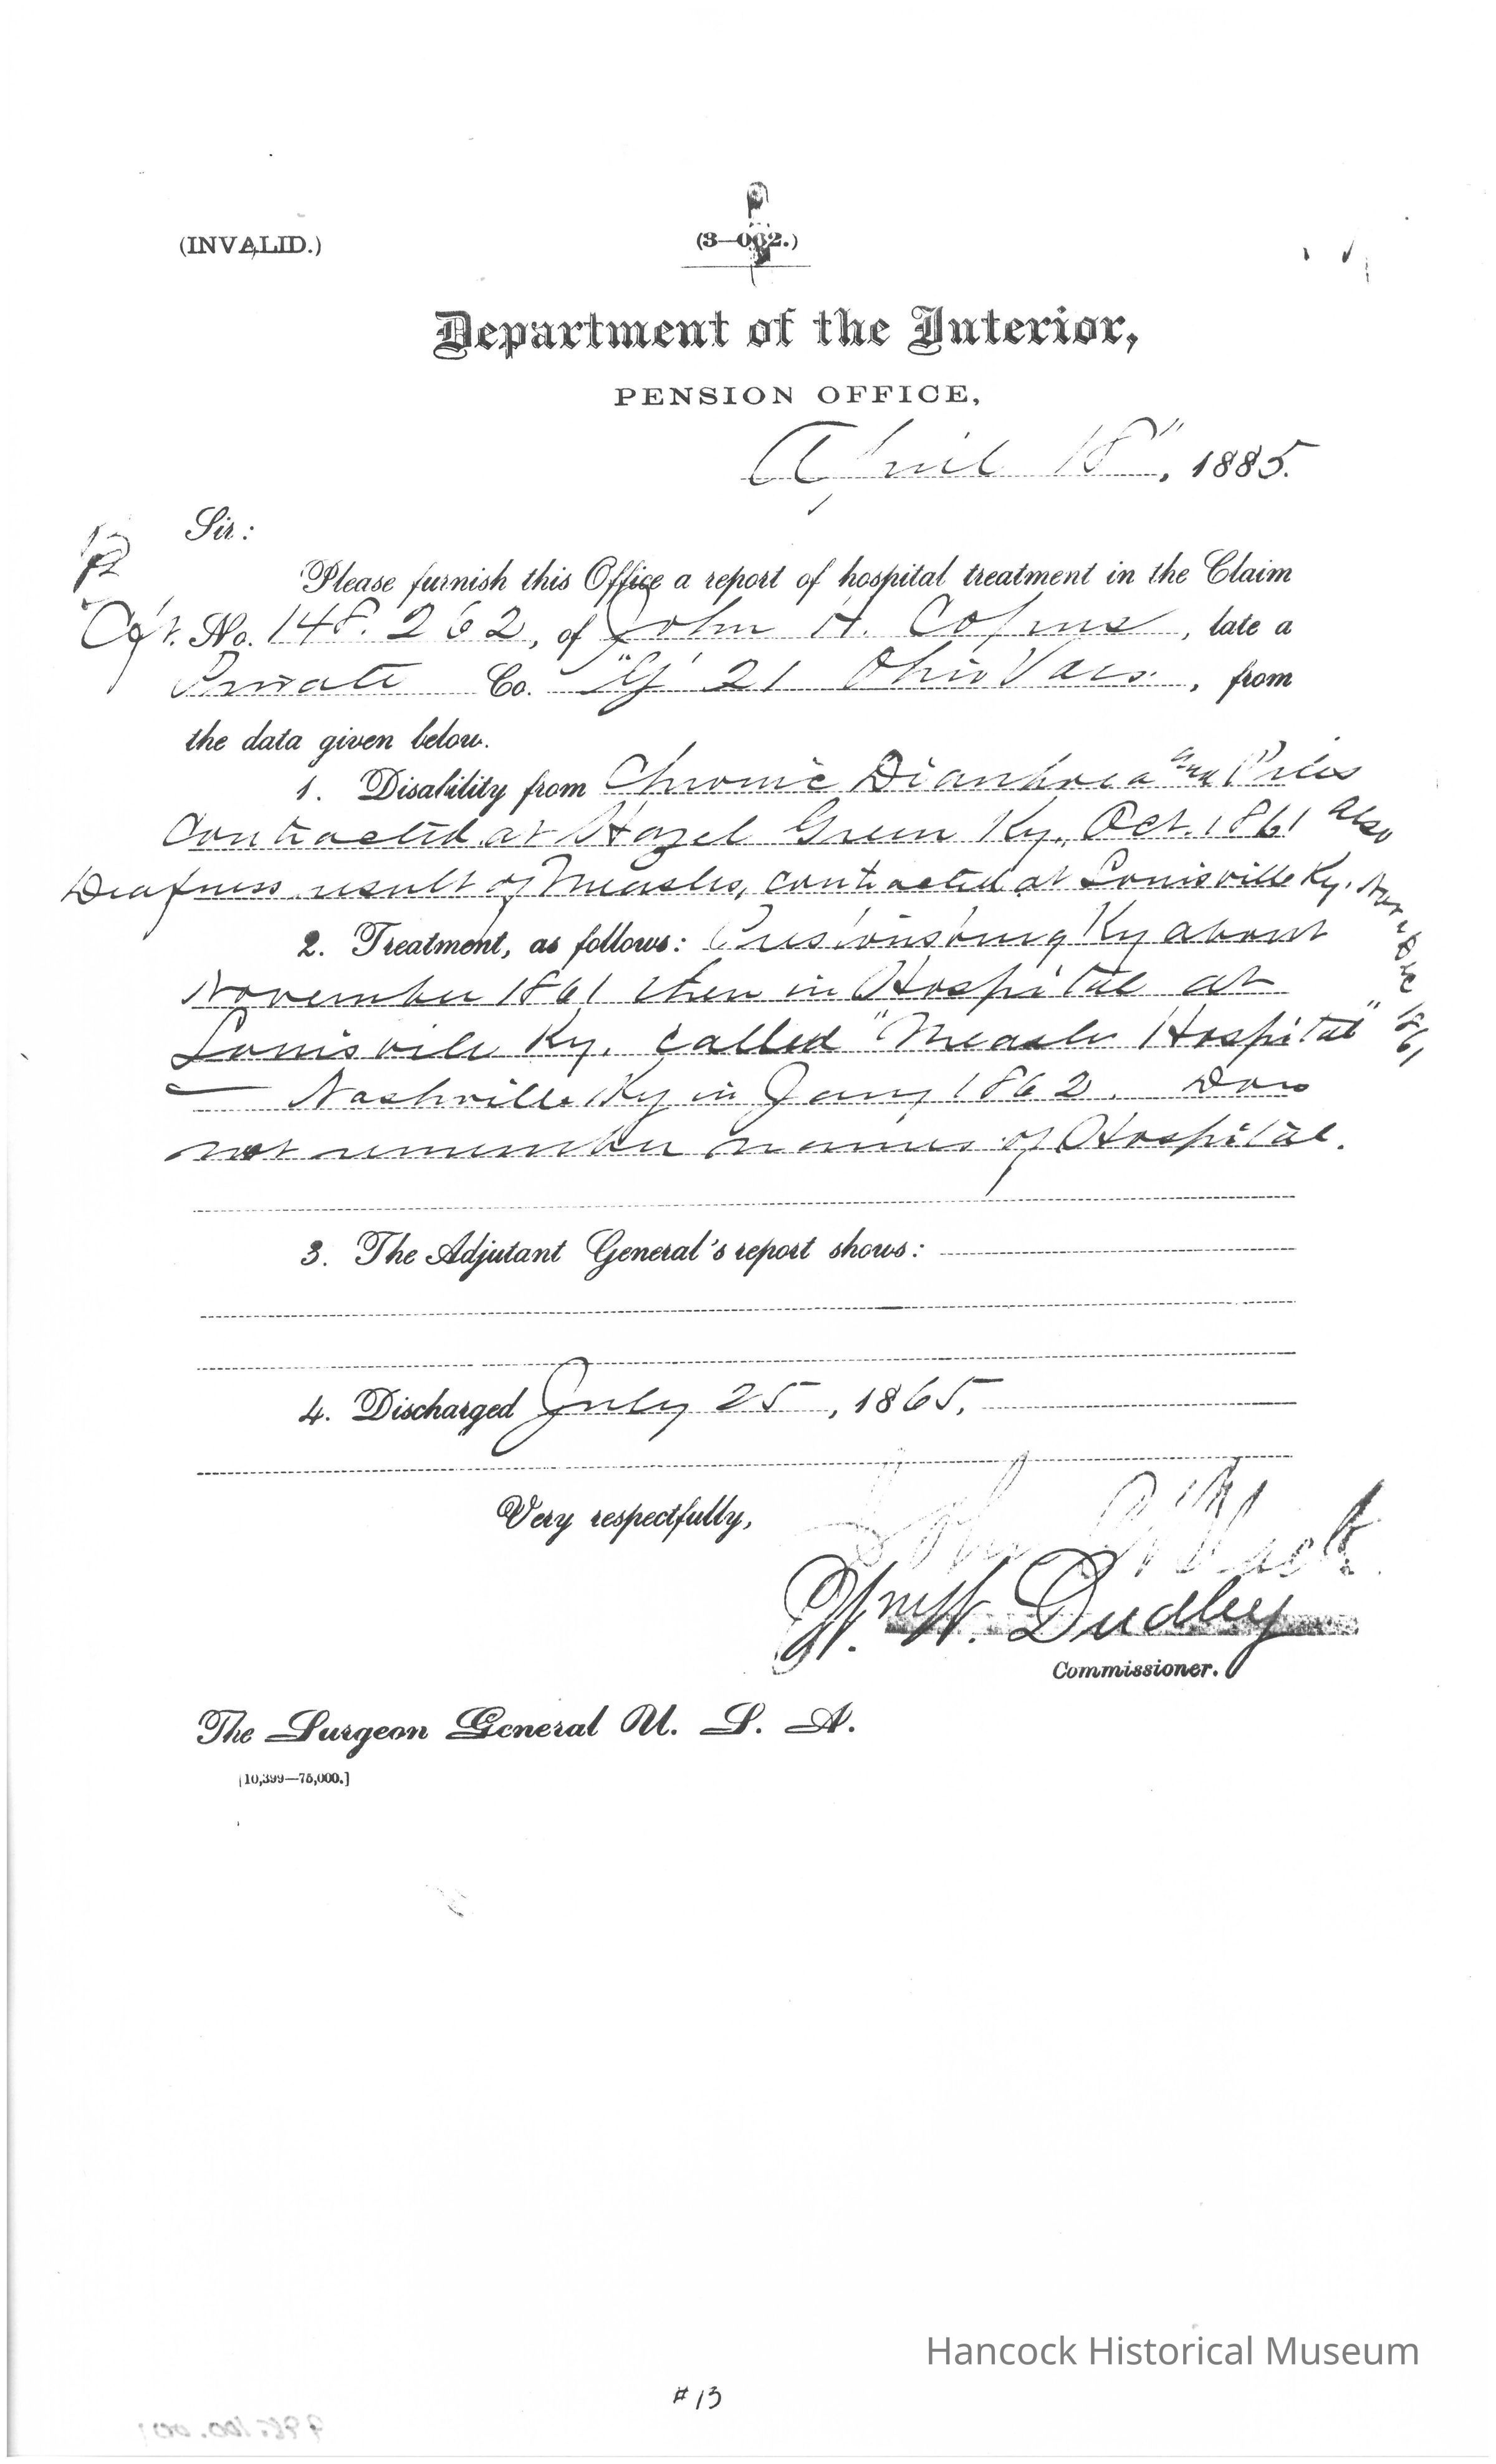 (INVALID.)
(3—062.)
Department of the Interior,
PENSION OFFICE,
April 18", 1885.
Sir:
Please furnish this Office a report of hospital treatment in the Claim
Cft. No. 148.262, of John H. Cofins, late a
Private Co. "G" 21 Ohio Vols., from
the data given below.
1. Disability from Chronic Diarrhoea and Piles
Contracted at Hazel Green Ky. Oct. 1861 also
Deafness result of Measles, contracted at Louisville Ky.
2. Treatment, as follows: Prestonsburg Ky about
November 1861 then in Hospital at
Louisville Ky. called "Measle Hospital"
— Nashville Ky in Jany 1862. Does
not remember names of Hospital.
3. The Adjutant General's report shows:
4. Discharged July 25, 1865.
Very respectfully,
Wm W. Dudley
Commissioner.
The Surgeon General U. S. A.
[10,399—75,000.]
Hancock Historical Museum
#13